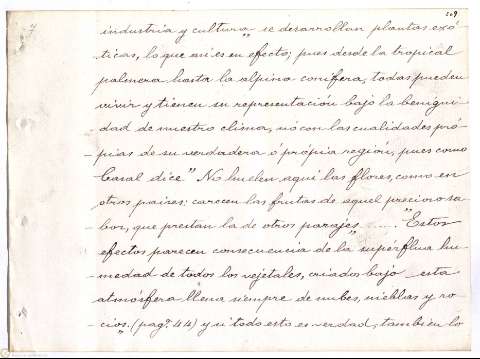 269
7
industria y cultura" se desarrollan plantas exó-
ticas, lo que asi es en efecto; pues desde la tropical
palmera hasta la alpina conifera, todas pueden
vivir y tienen su representación bajo la benigni-
dad de nuestro clima, nó con las cualidades pró-
pias de su verdadera ó própia región, pues como
Casal dice "No huelen aqui las flores, como en
otros paises: carecen las frutas de aquel precioso sa-
bor, que prestan la de otros parajes ..... "Estos
efectos parecen consecuencia de la superflua hu-
medad de todos los vejetales, criados bajo esta
atmósfera llena siempre de nubes, nieblas y ro-
cios". (pagª 44) y si todo esto es verdad, tambien lo